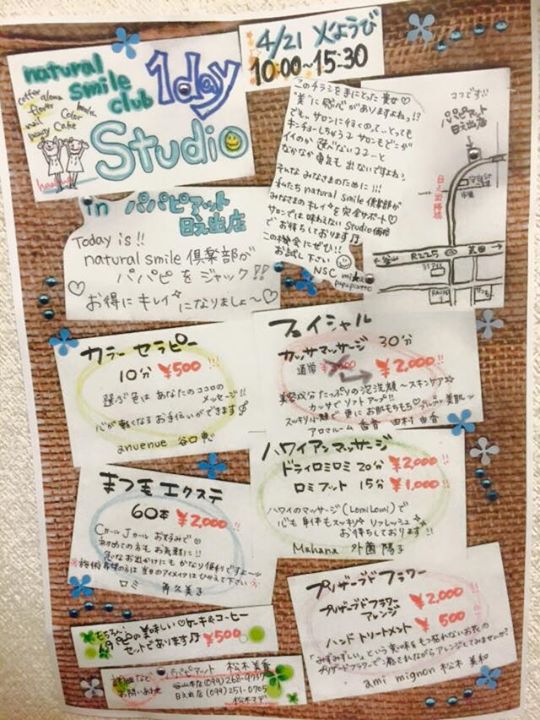 natural
smile
club
1day
Studio
coffee
aroma
flower
nail
Color
Cafe
4/21 火ようび
10:00〜15:30
このチラシを手にとった貴女♡
美に関心がありますよね!!
でも、サロンに行くのってとっても
キンチョーしちゃう
イイのか
なかなか勇気も出ないですよね?
そんなみなさまのために!!!
私たち natural smile 倶楽部が
みなさまのキレイを完全サポート♡
サロンでは味わえない Studio価格
でお待ちしております♪
この機会にぜひ!!
お試し下さい
NSC
ココです!!
パパピアット
日之出店
R225
in パパピアット
日之出店
Today is !!
natural smile 倶楽部が
パパピをジャック!!
お得にキレイになりましょ〜♡
カラーセラピー
10分 ¥500!!
選ぶ色はあなたのココロの
メッセージ!!
心が軽くなるお手伝いができます
anuenue 谷口 恵
フェイシャル
カッサマッサージ 30分
通常 ¥2,000!!
たっぷりの泡洗顔〜スキンケア
カッサでリフトアップ!!
スッキリ小顔で更にお肌もちもち♡
アロマルーム 香音 田村 由香
まつ毛エクステ
60本 ¥2,000!!
Cカール Jカール お好みで♡
初めての方もお気軽に!!
急なお出かけにもかなり便利ですよ〜
※施術希望の方は当日のアイメイクはひかえて下さい※
ロミ 寿久美子
ハワイアンマッサージ
ドライロミロミ 20分 ¥2,000!!
ロミフット 15分 ¥1,000!!
ハワイのマッサージ(LomiLomi)で
心も身体もスッキリ リフレッシュ
お待ちしております!!
Mahana 外薗 陽子
プリザーブドフラワー
プリザーブドフラワー
アレンジ ¥2,000
ハンドトリートメント ¥500
「みずみずしい」という意味をもつ枯れないお花の
プリザーブドフラワーで癒されながらアレンジしてみませんか?
ami mignon 松木 美和
もちろん
パパピの美味しい♡ケーキ&コーヒー
セットであります♪ ¥500
詳細など
お問い合わせ
パパピアット 松木 美香
谷山本店(099)268-9737
日之出店(099)251-0705
松木マデ